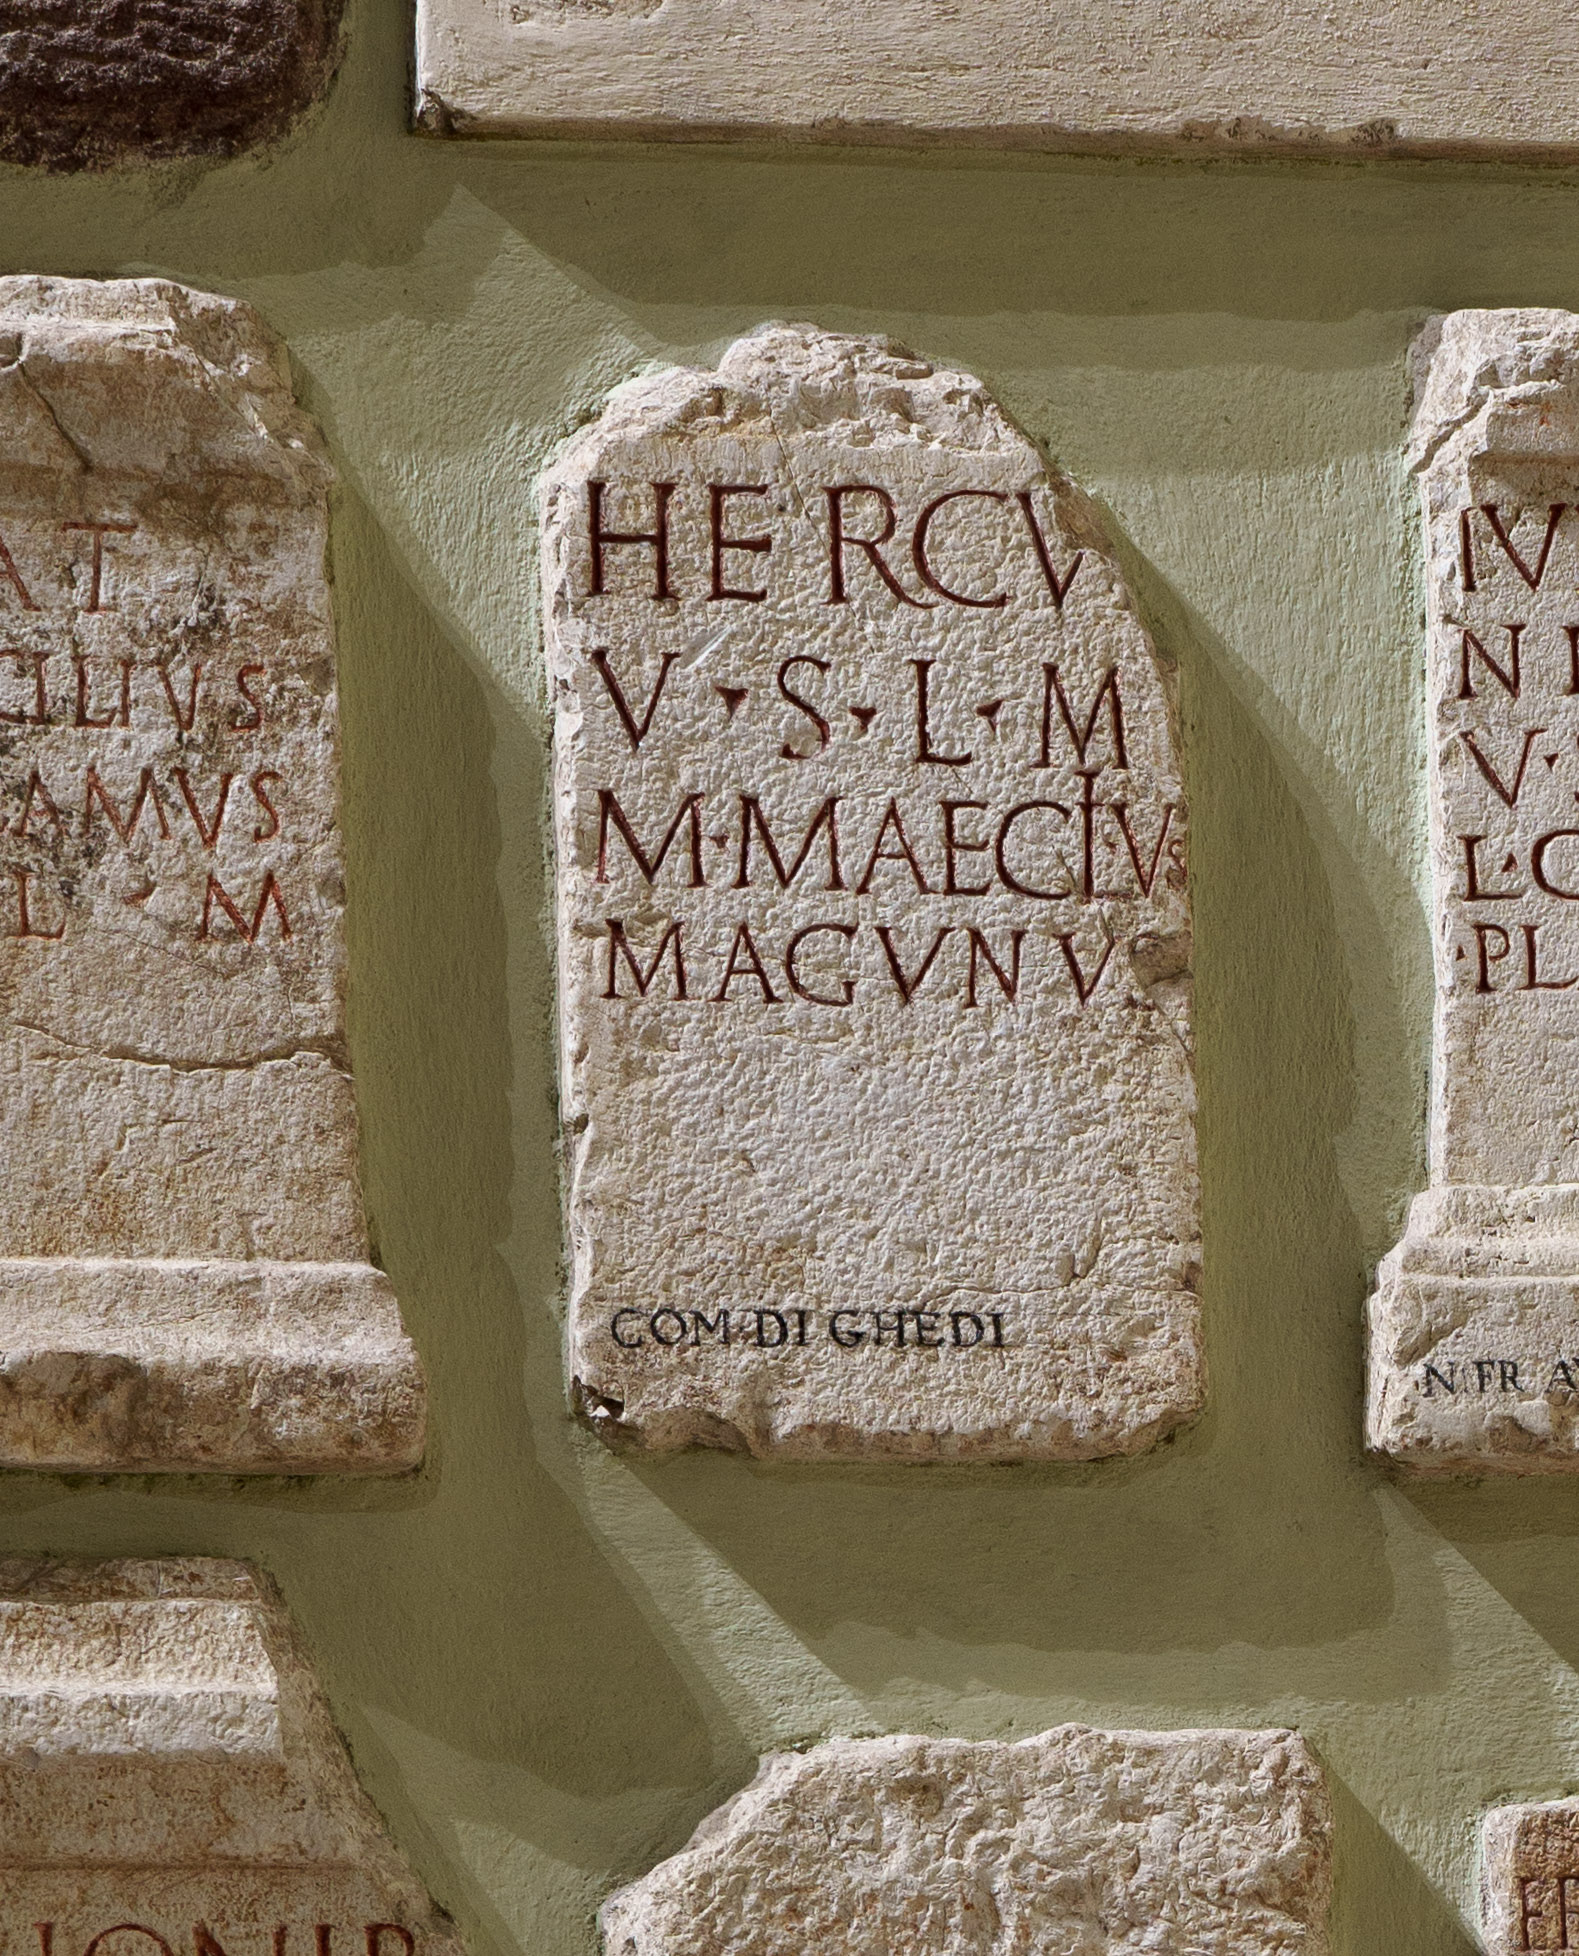 HERCV
V·S·L·M
M·MAECIVS
MAGVNV
COM·DI GHEDI
AT
CILIVS
AMVS
L · M
IV
N
V·
L·C
·PL
N FR A